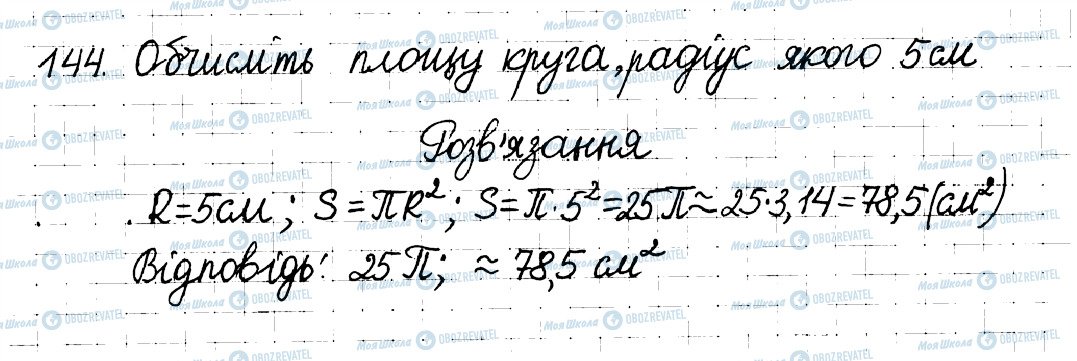 144. Обчисліть площу круга, радіус якого 5 см
Розв'язання
R=5см; S=πR²; S=π·5²=25π≈25·3,14=78,5(см²)
Відповідь: 25π; ≈78,5 см²